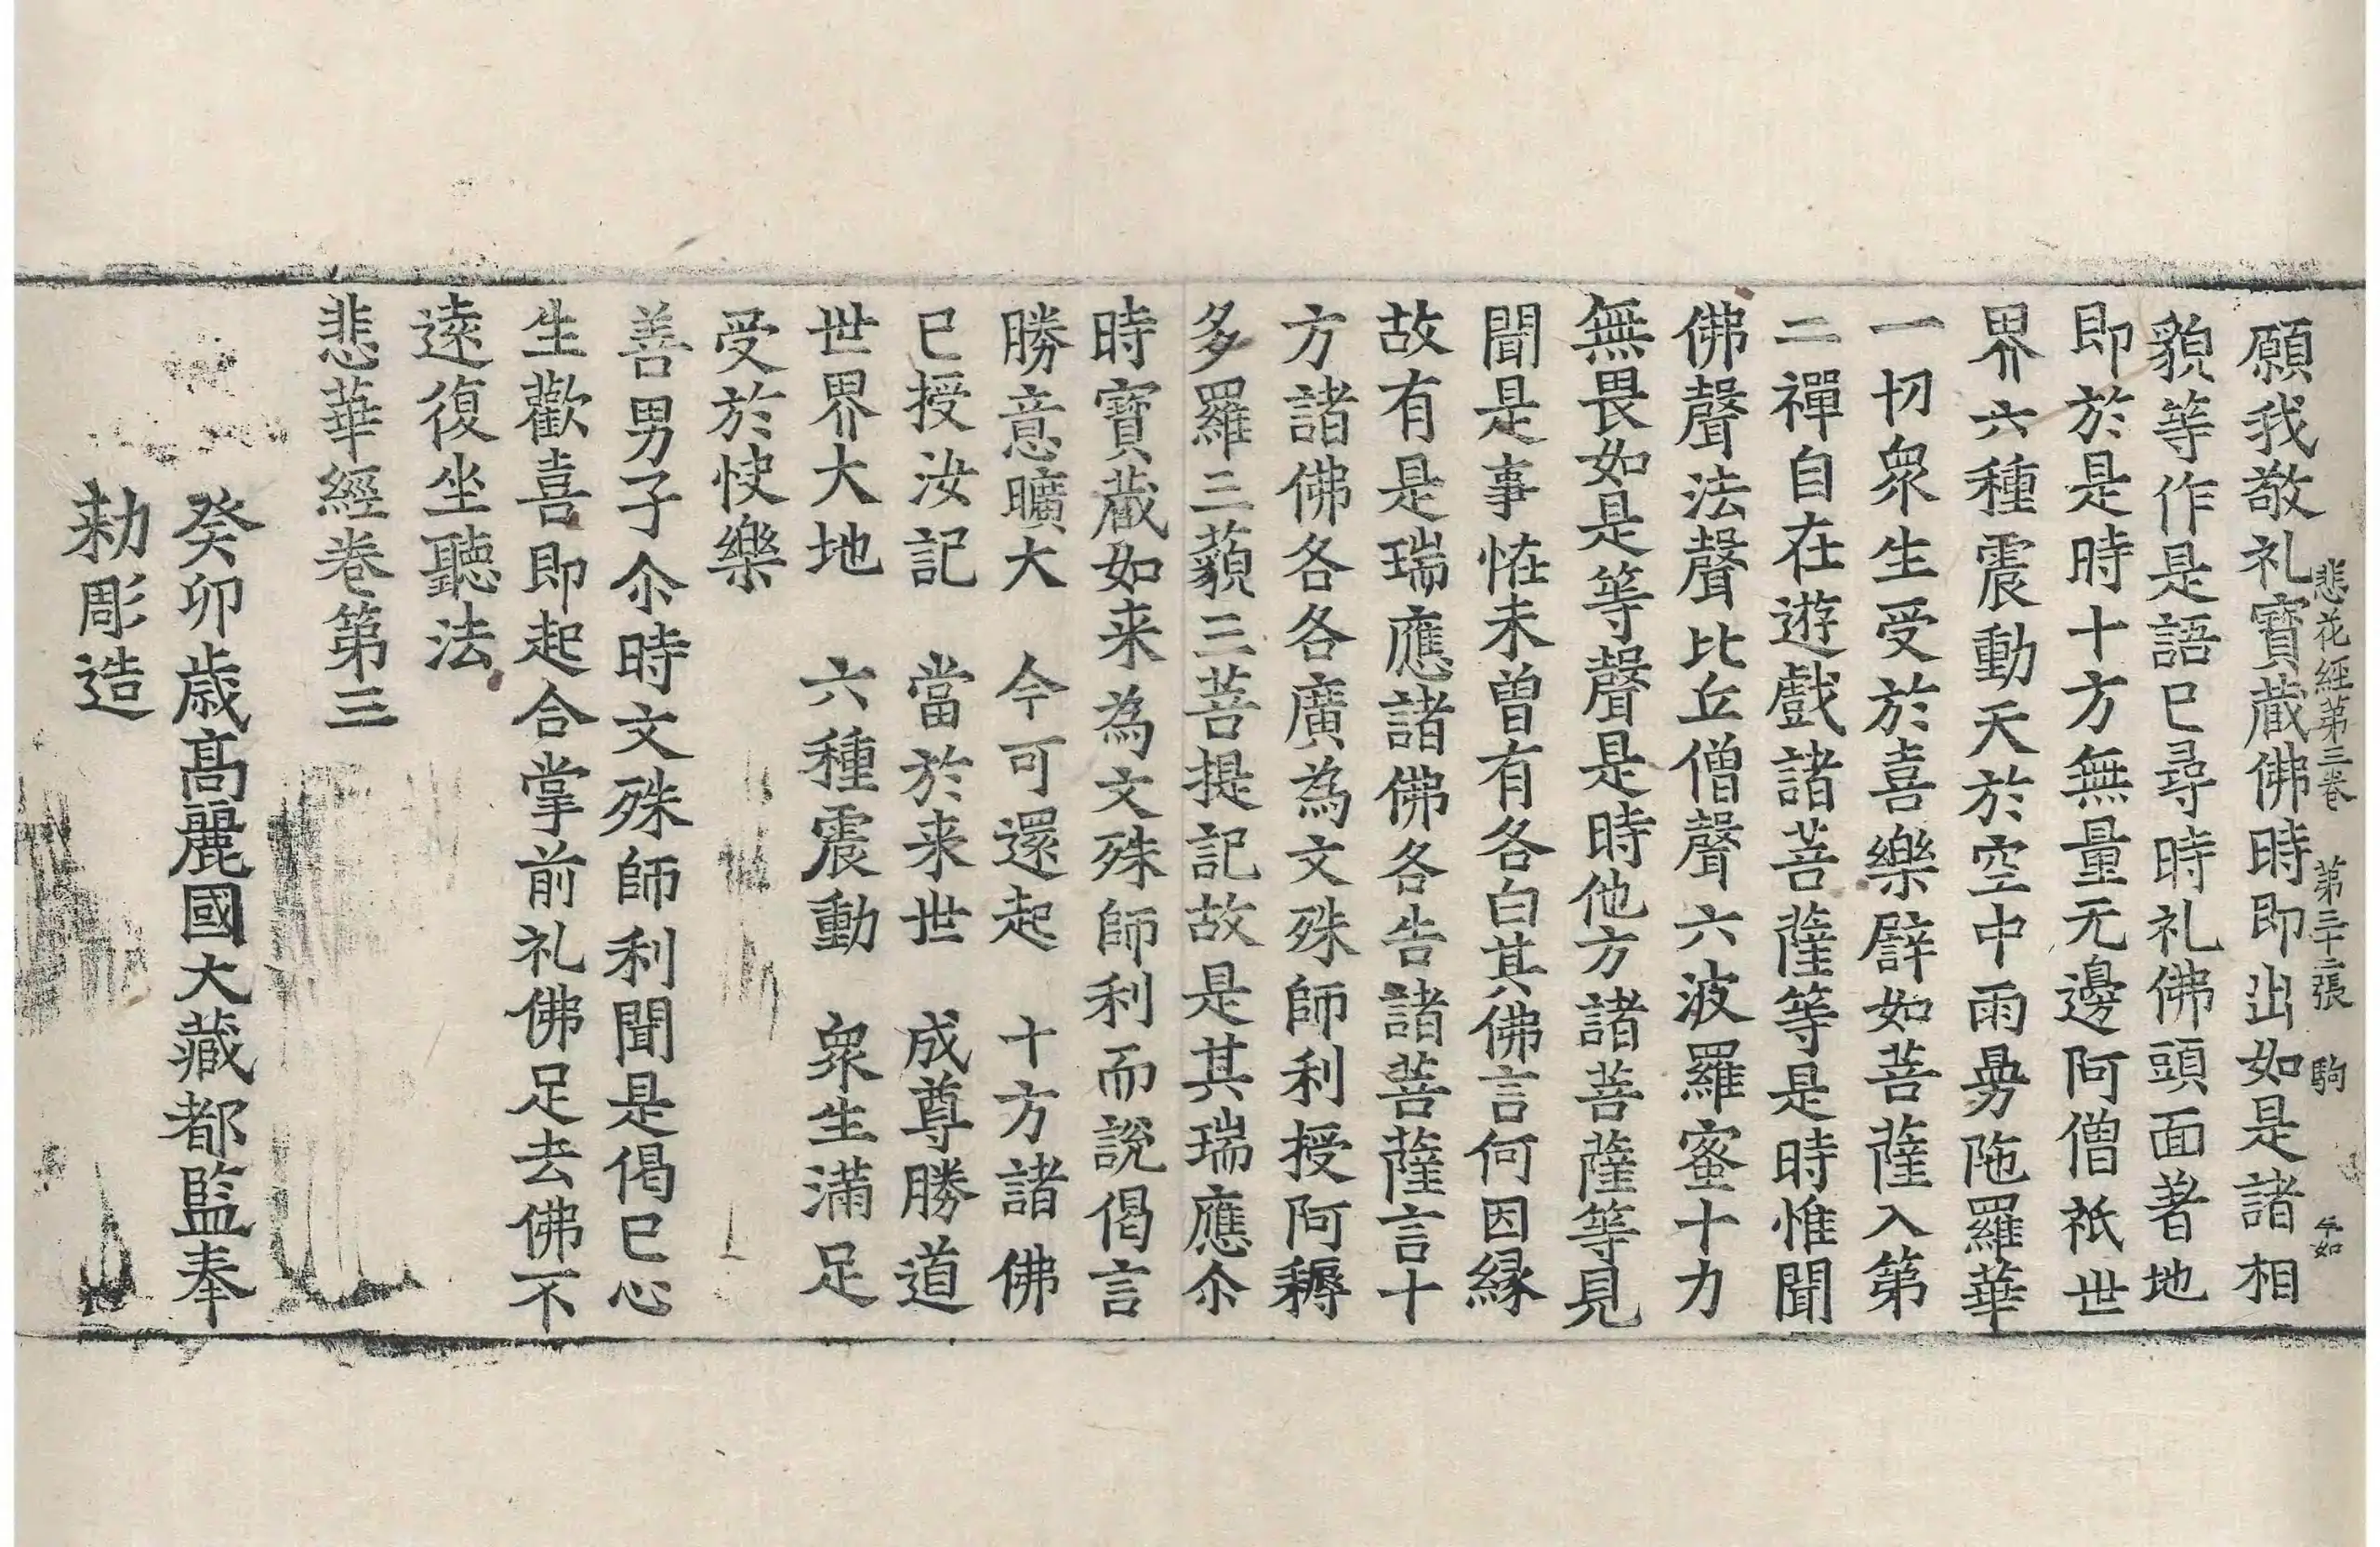 悲花經第三卷 第三十二張 駒
願我敬礼寶蔵佛時即出如是諸相
貌等作是語已尋時礼佛頭面著地
即於是時十方無量无邊阿僧祇世
界六種震動天於空中雨曼陁羅華
一切衆生受於喜樂譬如菩薩入第
二禪自在遊戲諸菩薩等是時惟聞
佛聲法聲比丘僧聲六波羅蜜十力
無畏如是等聲是時他方諸菩薩等見
聞是事恠未曾有各白其佛言何因縁
故有是瑞應諸佛各告諸菩薩言十
方諸佛各各廣為文殊師利授阿耨
多羅三藐三菩提記故是其瑞應尒
時寶蔵如来為文殊師利而說偈言
勝意曠大 今可還起 十方諸佛
已授汝記 當於来世 成尊勝道
世界大地 六種震動 衆生滿足
受於快樂
善男子尒時文殊師利聞是偈已心
生歡喜即起合掌前礼佛足去佛不
遠復坐聽法
悲華經卷第三
癸卯歳高麗國大藏都監奉
勑彫造